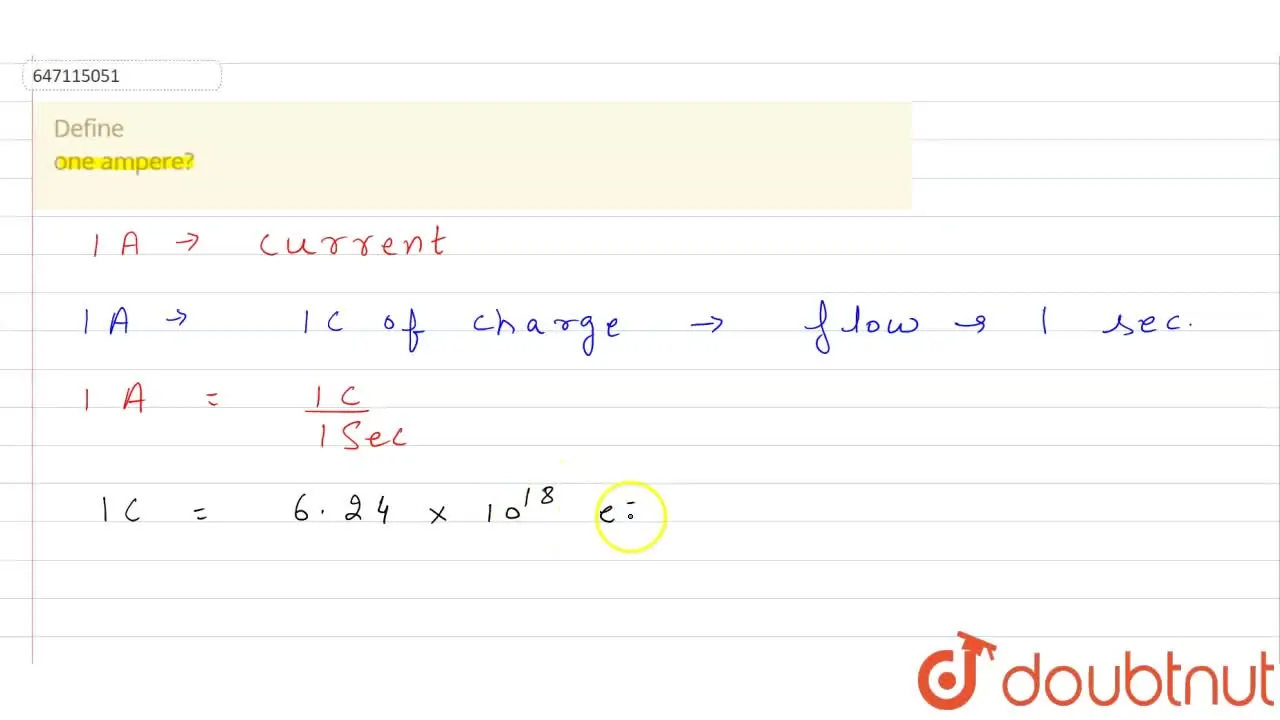 647115051
Define
one ampere?
1 A → current
1 A → 1C of charge → flow → 1 sec.
1 A = 1 C / 1 Sec
1C = 6.24 × 10^18 e-
doubtnut